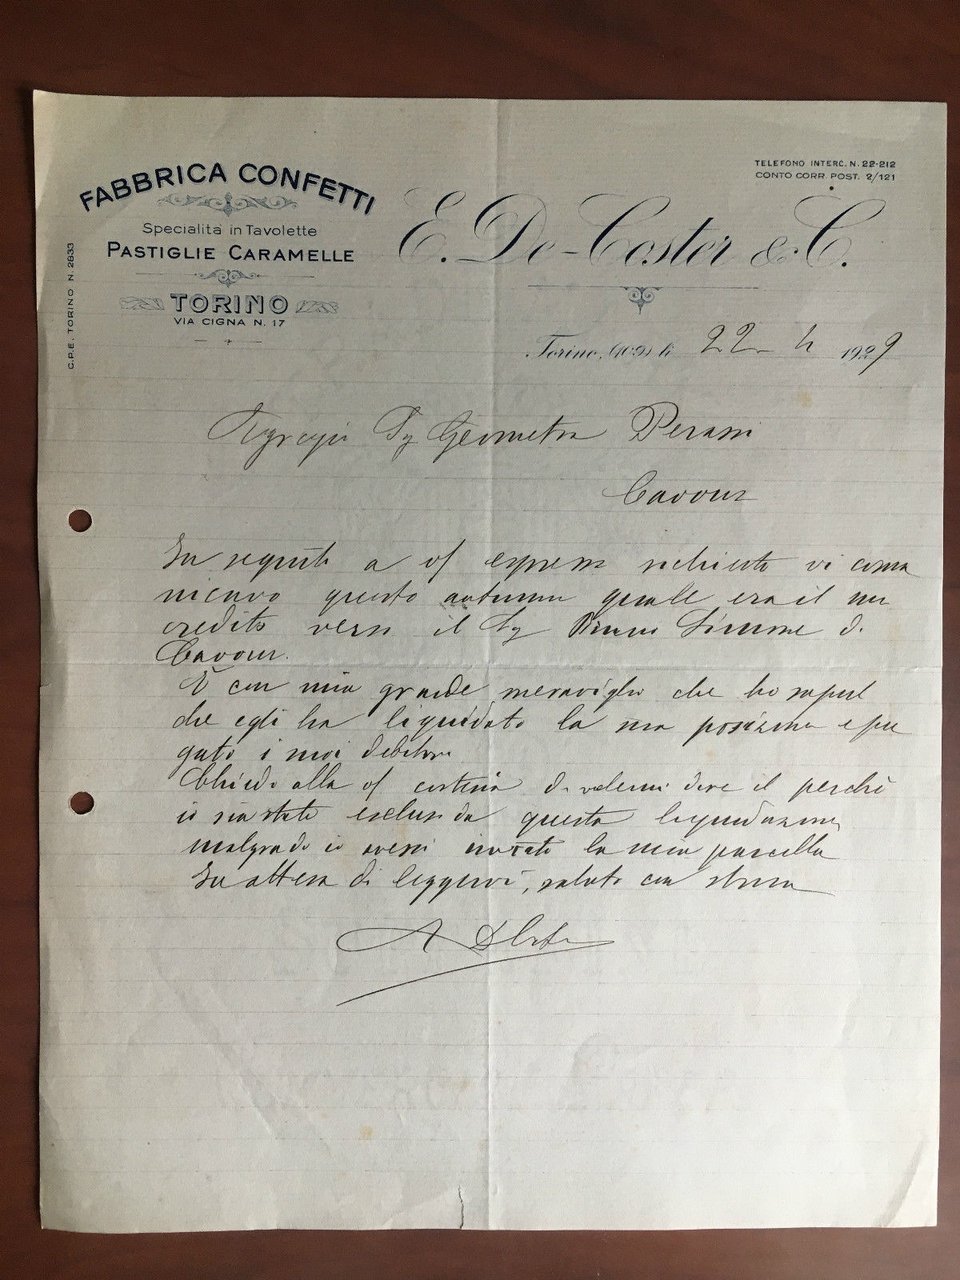 FABBRICA CONFETTI
Specialità in Tavolette
PASTIGLIE CARAMELLE
TORINO
VIA CIGNA N. 17
C.P.E. TORINO N. 2633
TELEFONO INTERC. N. 22-212
CONTO CORR. POST. 2/121
E. De-Coster & C.
Torino, (109) li 22 4 1929
Egregio Sg Geometra Perassi
Cavour
In seguito a vs espressa richiesta vi comu
nicavo questo autunno quale era il mio
credito verso il Sg Simone di
Cavour.
È con mia grande meraviglia che ho saputo
che egli ha liquidato la sua posizione e pa
gato i suoi debitori
Chiedo alla vs cortesia di volermi dire il perchè
io sia stato escluso da questa liquidazione
malgrado io avessi inviato la mia parcella
In attesa di leggervi, saluto con stima